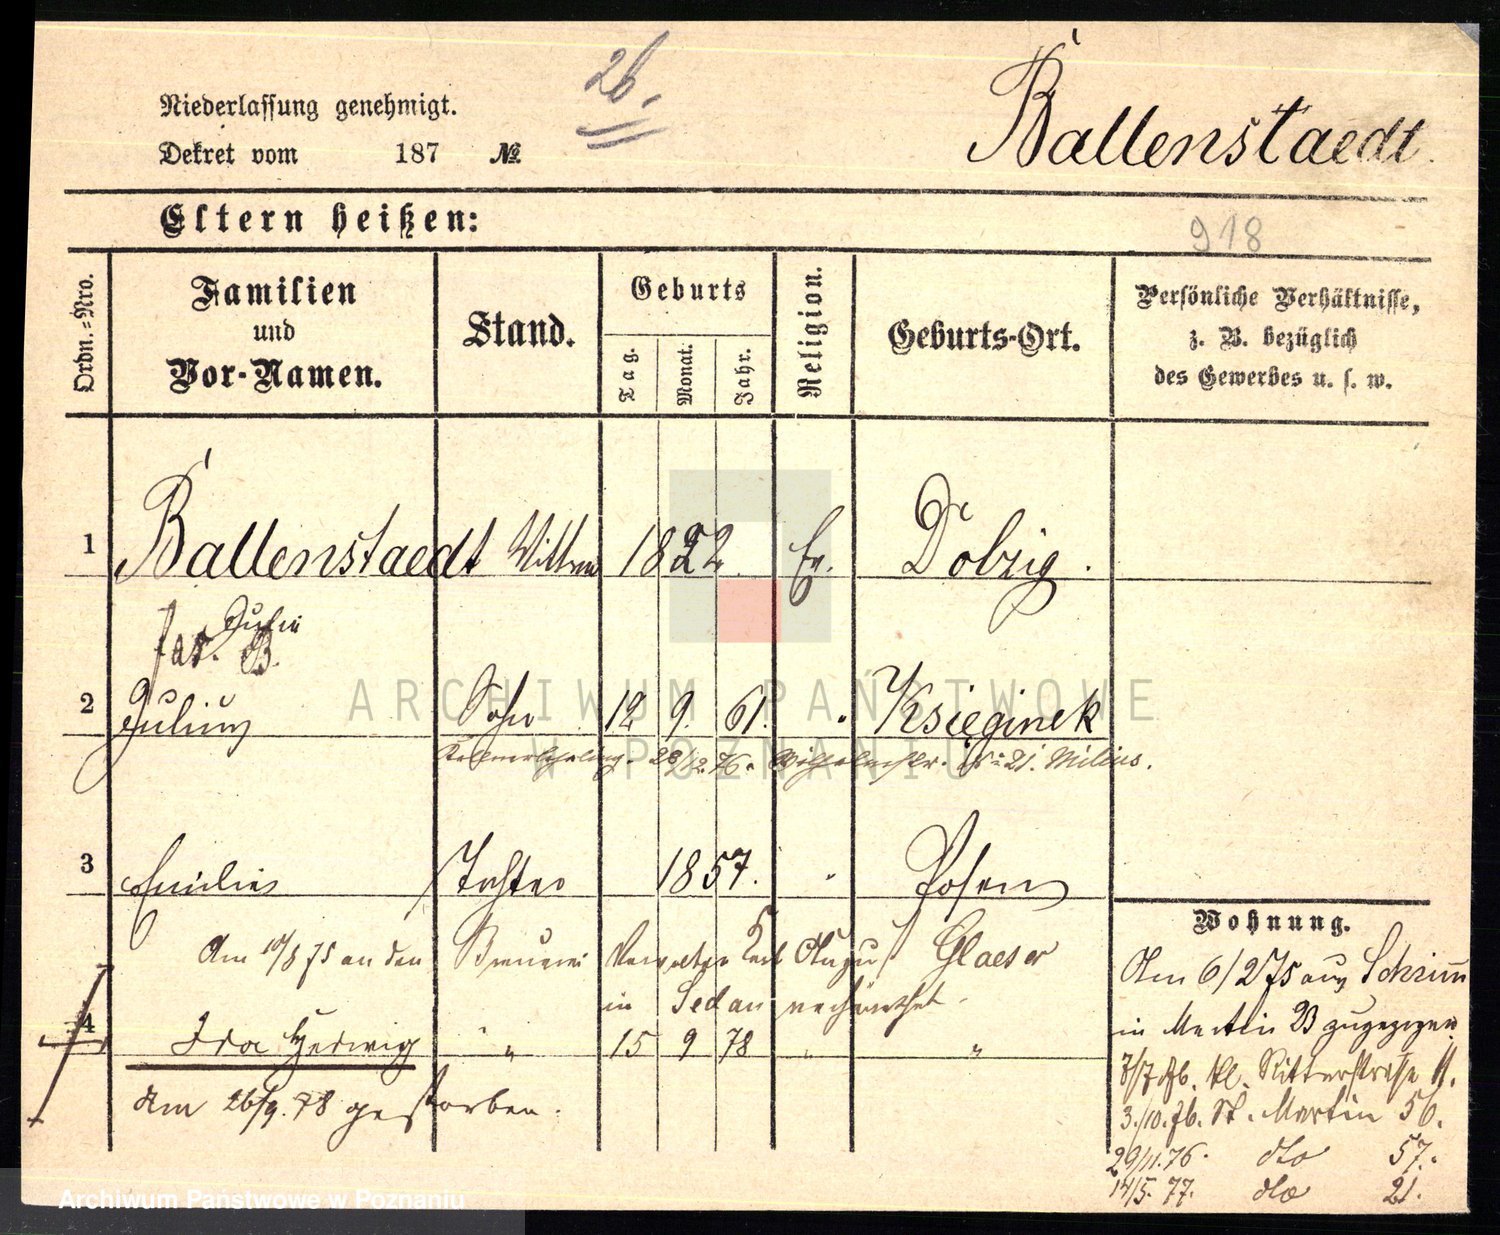 26.
Ballenstaedt.
Niederlassung genehmigt.
Dekret vom 187 №
Eltern heißen:
918
Ordn.=Nro.
Familien
und
Vor-Namen.
Stand.
Geburts
Tag.
Monat.
Jahr.
Religion.
Geburts-Ort.
Persönliche Verhältnisse,
z. B. bezüglich
des Gewerbes u. s. w.
1 Ballenstaedt Wittwe 1822. Ev. Dolzig.
2 Julius Sohn 12 9. 61. " Książginek
28/12. 76. Wilhelmstr. 21. Milius.
3 Emilie Tochter 1857. " Posen
Am 10/8 75 an den Brauerei Verwalter Karl August Glaeser
in Sedan verheirathet.
4 Ida Hedwig " 15 9 78 " "
am 26/9. 78 gestorben.
Wohnung.
Am 6/2 75 aus Schrimm
in Martin 23 zugezogen
7/7 kl. Ritterstraße 11.
3./10. St. Martin 56.
29/11. 76. dto 57.
14/5. 77. dto 21.
ARCHIWUM PAŃSTWOWE
W POZNANIU
Archiwum Państwowe w Poznaniu